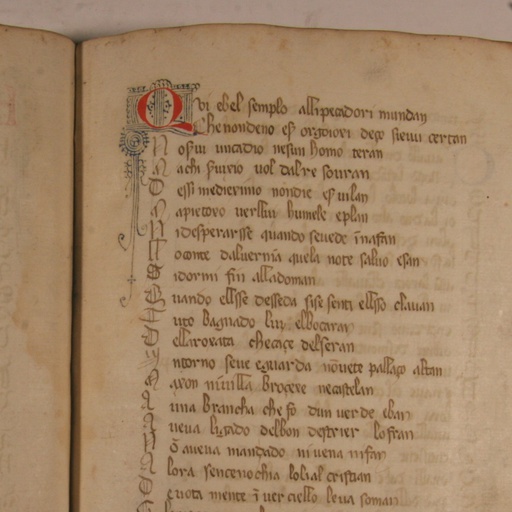 Qvi ebel semplo alli pecadori mundan
Che non deno es orgoiori deço sienu certan
Nosvu uncadio nesun homo teran
achi servirio uol dal re souran
esse medierimo non die esvilan
apietoro verlluy humele e plan
Nidesperarsse quando se uede inafan
conte da luernia quela note saluo e san
Sidormi fin alla doman
Quando ellsse desseda sise senti ellso clauan
tuto bagnado lui elbocaran
ella roxata che caçe del seran
Intorno seue eguarda no uete pallaço altan
Ni villa broçere ne castelan
una brancha che fo dun uerde elban
ueua ligado del bon destrier lo fran
o aueua mançado ni uena ni fan
Alora sencenochia lo lial cristian
Deuota mente in uer ciello leua soman